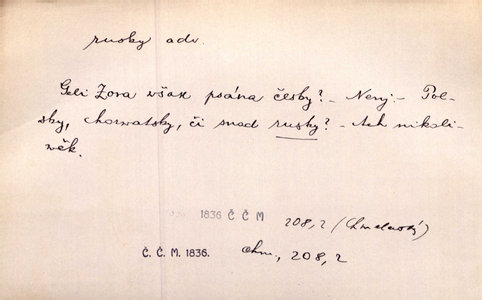 rusky adv.
Geli Zora však psána česky? - Neny. - Pol-
sky, chorwatsky, či snad rusky? - Ach nikoli-
wěk.
1836 Č Č M 208,2 (Chmelenský)
Č. Č. M. 1836. Chm., 208,2